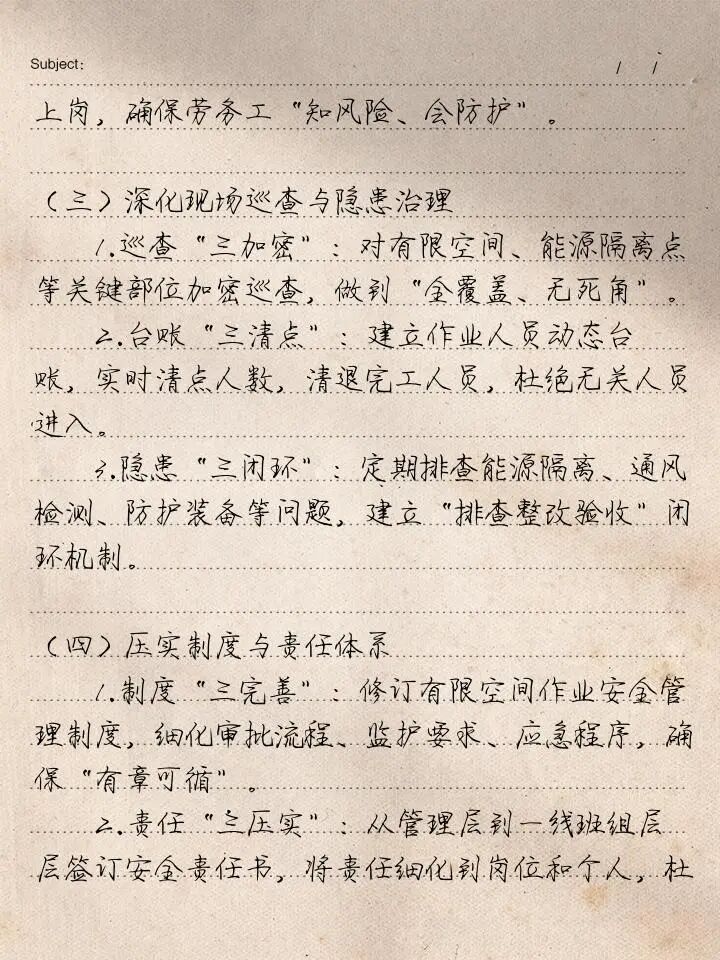 Subject: / /
上岗，确保劳务工“知风险、会防护”。
（三）深化现场巡查与隐患治理
1.巡查“三加密”：对有限空间、能源隔离点
等关键部位加密巡查，做到“全覆盖、无死角”。
2.台账“三清点”：建立作业人员动态台
账，实时清点人数，清退完工人员，杜绝无关人员
进入。
3.隐患“三闭环”：定期排查能源隔离、通风
检测、防护装备等问题，建立“排查整改验收”闭
环机制。
（四）压实制度与责任体系
1.制度“三完善”：修订有限空间作业安全管
理制度，细化审批流程、监护要求、应急程序，确
保“有章可循”。
2.责任“三压实”：从管理层到一线班组层
层签订安全责任书，将责任细化到岗位和个人，杜